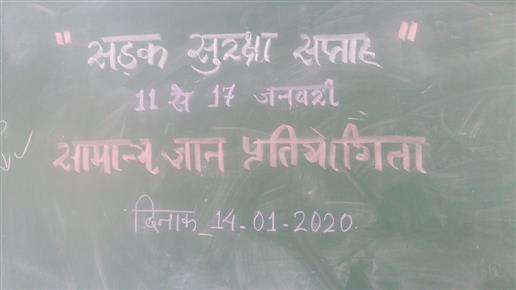 " सड़क सुरक्षा सप्ताह "
11 से 17 जनवरी
सामान्य ज्ञान प्रतियोगिता
दिनाक 14-01-2020.